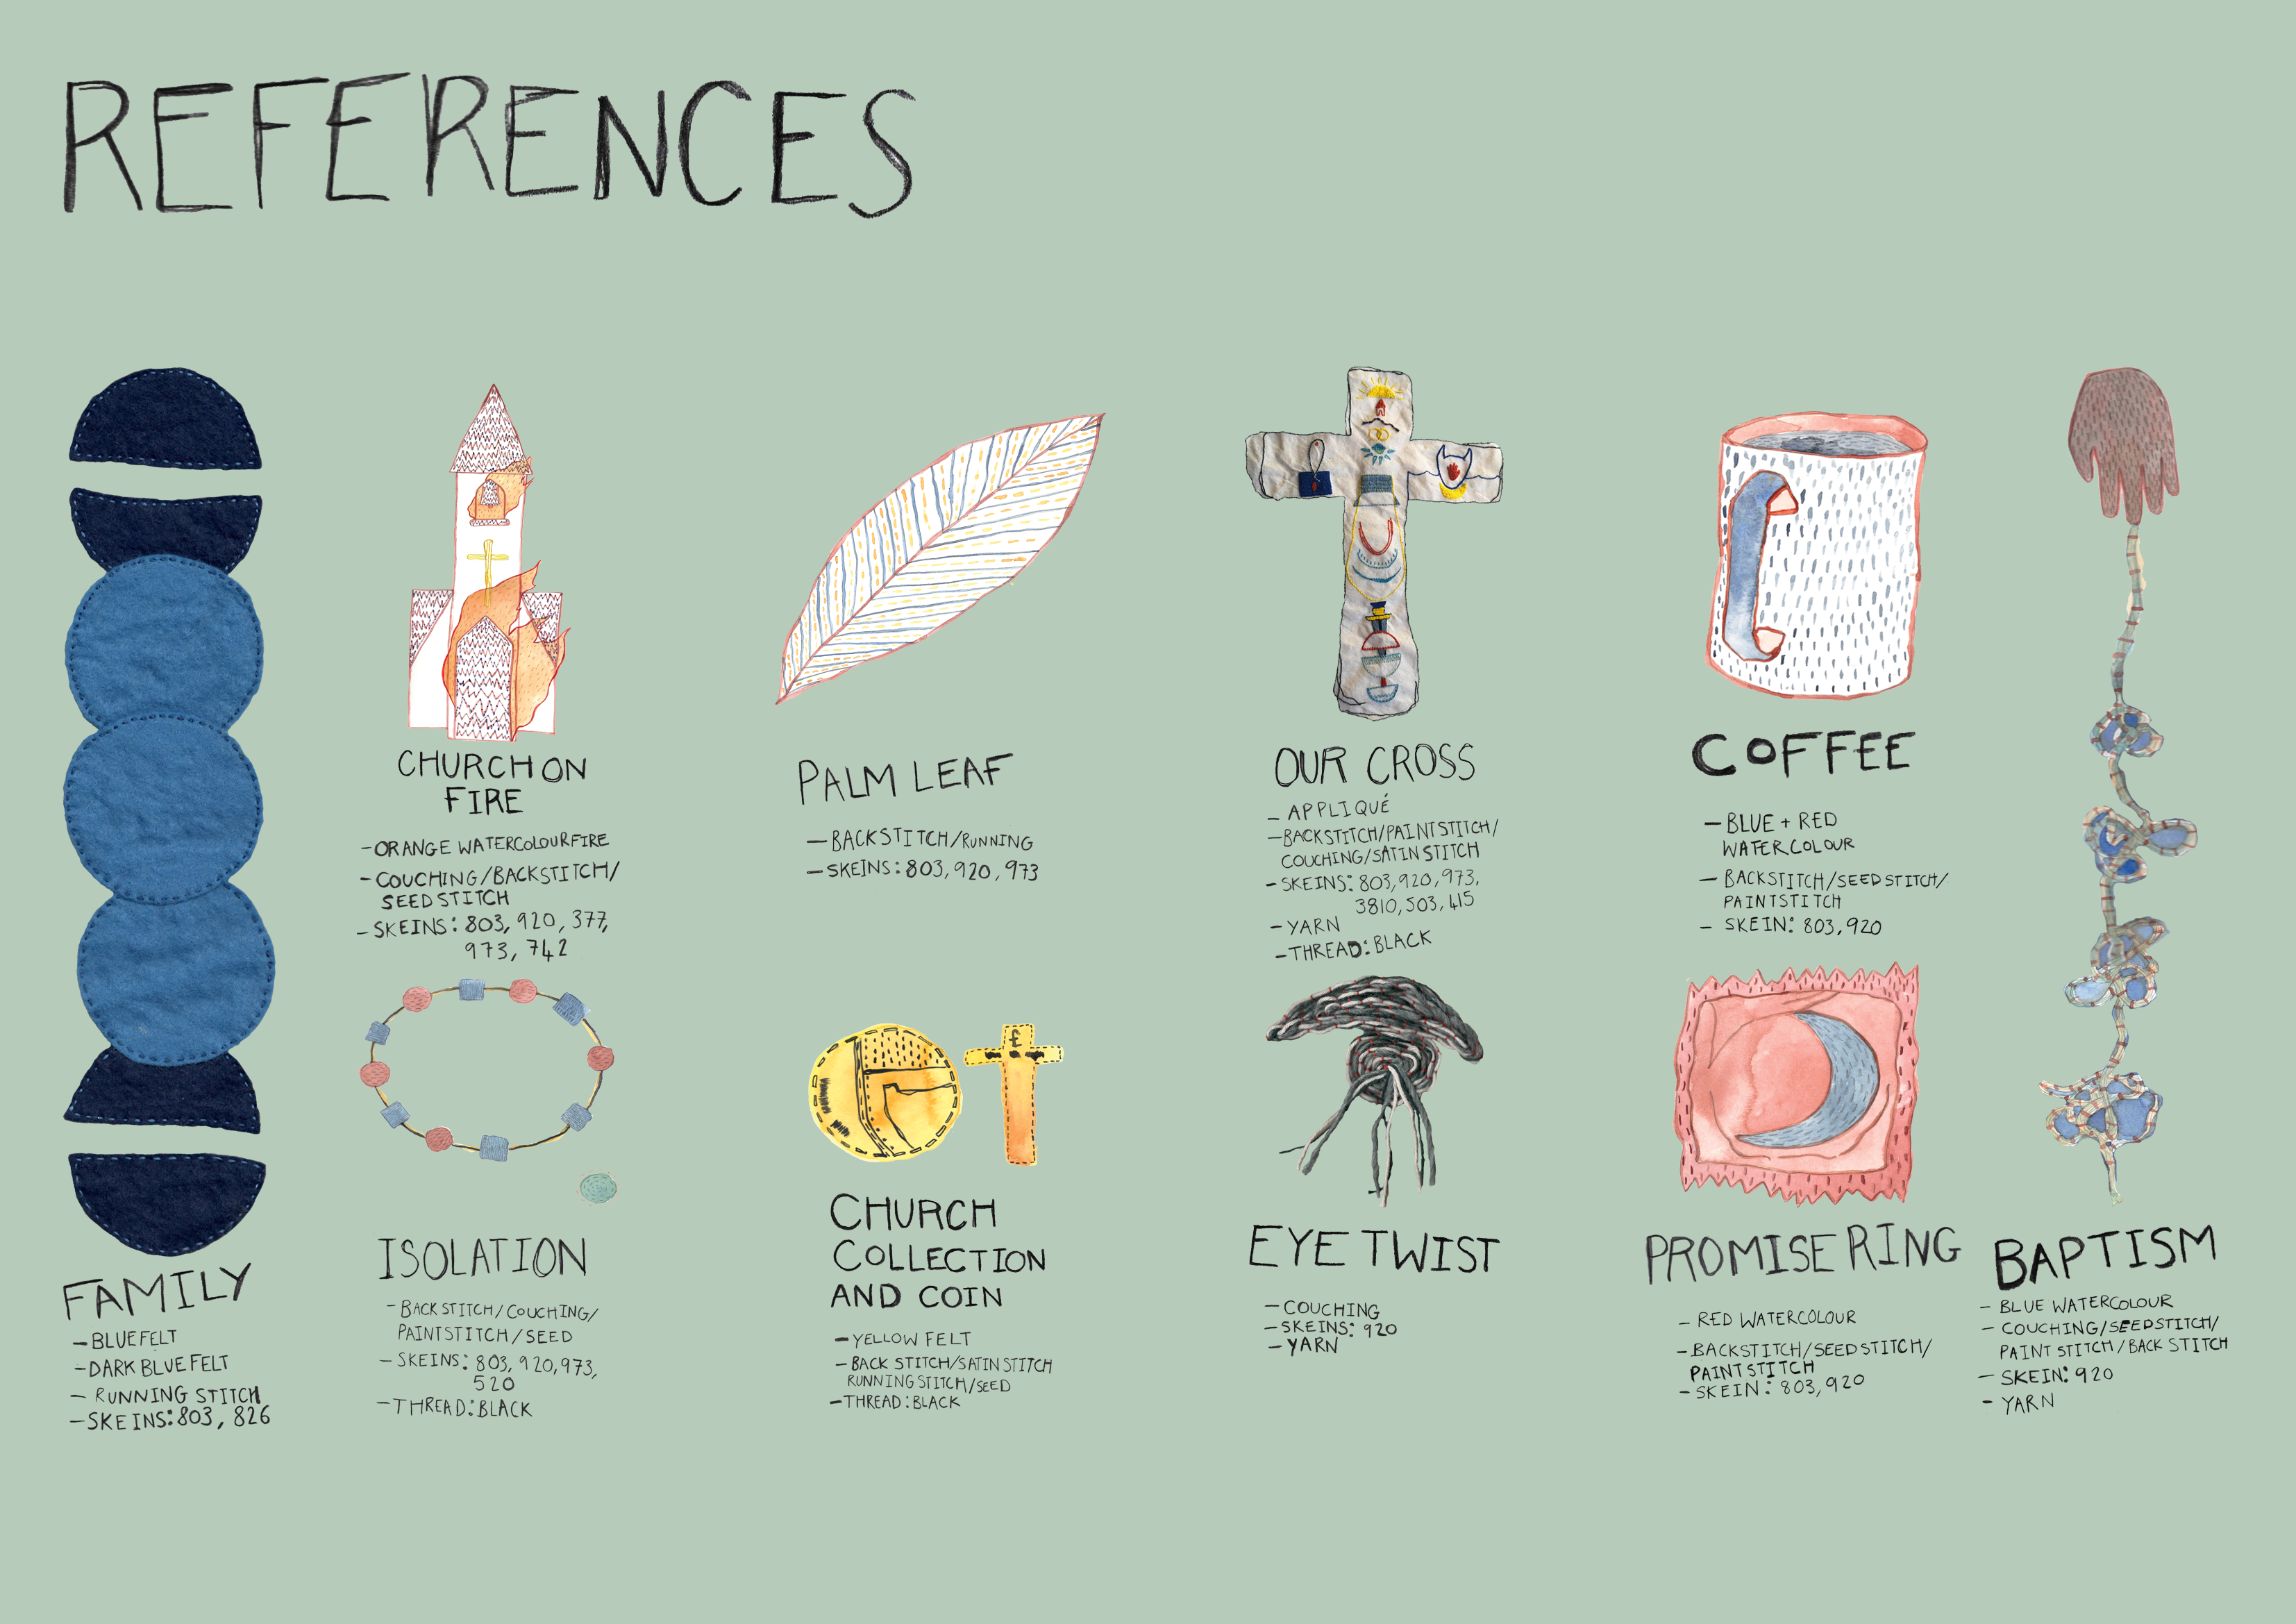 REFERENCES
FAMILY
-BLUE FELT
-DARK BLUE FELT
- RUNNING STITCH
-SKEINS: 803, 826
CHURCH ON
FIRE
-ORANGE WATERCOLOUR FIRE
- COUCHING/BACKSTITCH/
SEED STITCH
-SKEINS: 803, 920, 377,
973, 742
ISOLATION
- BACK STITCH/COUCHING/
PAINTSTITCH/SEED
- SKEINS: 803, 920, 973,
520
-THREAD: BLACK
PALM LEAF
-BACKSTITCH/RUNNING
-SKEINS: 803, 920, 973
CHURCH
COLLECTION
AND COIN
-YELLOW FELT
-BACK STITCH/SATIN STITCH
RUNNING STITCH/SEED
-THREAD: BLACK
OUR CROSS
- APPLIQUÉ
-BACKSTITCH/PAINTSTITCH/
COUCHING/SATIN STITCH
-SKEINS: 803, 920, 973,
3810, 503, 415
-YARN
-THREAD: BLACK
EYE TWIST
-COUCHING
-SKEINS: 920
-YARN
COFFEE
-BLUE + RED
WATERCOLOUR
- BACKSTITCH/SEED STITCH/
PAINTSTITCH
- SKEIN: 803, 920
PROMISE RING
- RED WATERCOLOUR
-BACKSTITCH/SEEDSTITCH/
PAINTSTITCH
-SKEIN: 803, 920
BAPTISM
- BLUE WATERCOLOUR
- COUCHING/SEEDSTITCH/
PAINT STITCH/BACK STITCH
- SKEIN: 920
- YARN